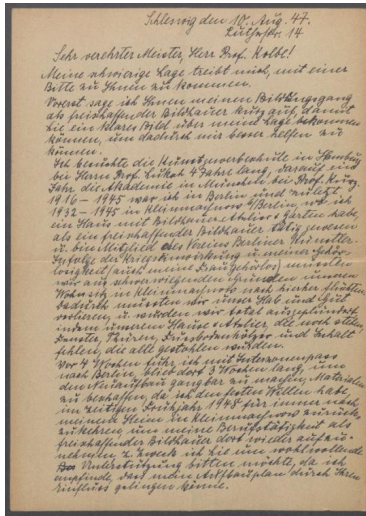 Schleswig den 10. Aug. 47.
Lutherstr. 14
Sehr verehrter Meister, Herr Prof. Kolbe!
Meine schwierige Lage treibt mich, mit einer
Bitte zu Ihnen zu kommen.
Vorerst sage ich Ihnen meinen Bildungsgang
als freischaffender Bildhauer kurz auf, damit
Sie ein klares Bild über meine Lage bekommen
können, um dadurch mir besser helfen zu
können.
Ich besuchte die Kunstgewerbeschule in Hamburg
bei Herrn Prof. 4 Jahre lang, darauf ein
Jahr die Akademie in München bei Prof.
1916 - 1945 war ich in Berlin und zuletzt
1932 - 1945 in Kleinmachnow b/Berlin, wo ich
ein Haus mit Bildhauer Atelier u Garten habe,
als ein freischaffender Bildhauer tätig gewesen
u. bin Mitglied des Vereins Berliner Künstler.
Infolge der Kriegseinwirkung u meiner Gehör-
losigkeit (auch meine Frau gehörlos) mussten
wir aus schwerwiegenden Gründen unseren
Wohnsitz in Kleinmachnow nach hierher flüchten,
dadurch mussten wir unser Hab und Gut
verlieren, u. wurden wir total ausgeplündert
indem unserem Hause u Atelier, die noch stehen
Fenster, Thüren, Fussbodenhölzer und Inhalt
fehlen, die alle gestohlen wurden.
Vor 4 Wochen fuhr ich mit Interzonenpass
nach Berlin, blieb dort 3 Wochen lang, um
den Neuaufbau gangbar zu machen, Materialien
zu beschaffen, da ich den festen Willen habe,
im zeitigen Frühjahr 1948 für immer nach
meinem Heim in Kleinmachnow zurück-
zukehren, um meine Berufstätigkeit als
freischaffender Bildhauer dort wieder aufzu-
nehmen. Zu Zweck ich Sie um wohlwollende
Unterstützung bitten möchte, da ich
empfinde, dass mein Aufbauplan durch Ihren
Einfluss gelingen könne.